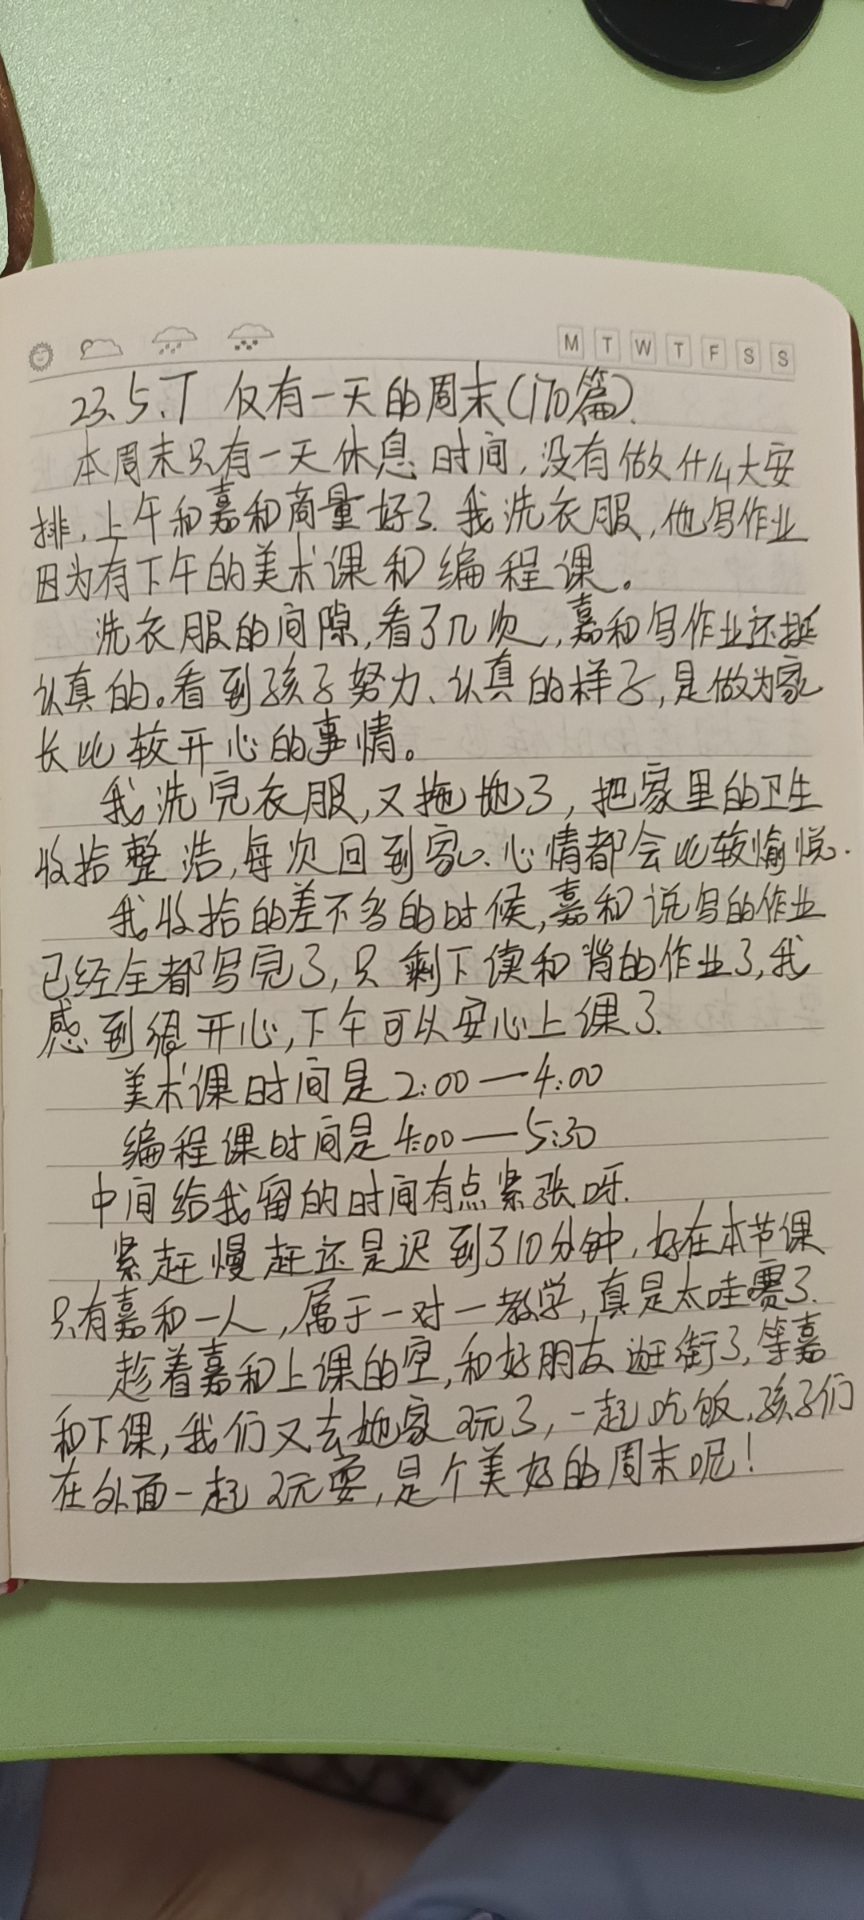 M T W T F S S
23.5.7 仅有一天的周末(170篇).
本周末只有一天休息时间,没有做什么大安
排,上午和嘉和商量好了.我洗衣服,他写作业
因为有下午的美术课和编程课。
洗衣服的间隙,看了几次,嘉和写作业还挺
认真的。看到孩子努力、认真的样子,是做为家
长比较开心的事情。
我洗完衣服,又拖地了,把家里的卫生
收拾整洁,每次回到家、心情都会比较愉悦.
我收拾的差不多的时候,嘉和说写的作业
已经全都写完了,只剩下读和背的作业了,我
感到很开心,下午可以安心上课了.
美术课时间是2:00—4:00
编程课时间是4:00—5:30
中间给我留的时间有点紧张呀.
紧赶慢赶还是迟到了10分钟,好在本节课
只有嘉和一人,属于一对一教学,真是太哇赛了.
趁着嘉和上课的空,和好朋友逛街了,等嘉
和下课,我们又去她家玩了,一起吃饭,孩子们
在外面一起玩耍,是个美好的周末呢!